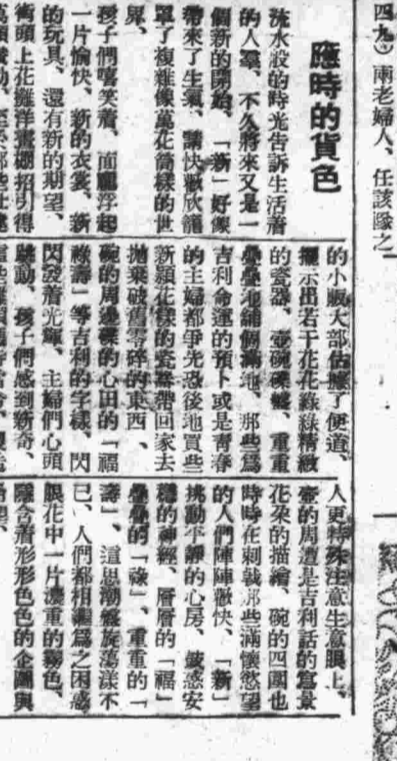 四九）兩老婦人、任該蹤之
應時的貨色
流水般的時光告訴生活着
的人羣、不久將來又是一
個新的開始、「新」好像
帶來了生氣、講快歡欣籠
罩了複雜像萬花筒樣的世
界、
孩子們嘻笑着、面龐浮起
一片愉快、新的衣裳、新
的玩具、還有新的期望、
街頭上花攤洋畫棚招引得
的小販大部佔據了便道、
擺示出若干花花綠綠精緻
的瓷器、壺碗碟盤、重重
疊疊地舖個滿地、那些爲
吉利命運的預卜或是青春
的主婦都爭先恐後地買些
新穎花樣的瓷器帶回家去
拋棄破舊零碎的東西、
碗的周邊碟的心田的「福
祿壽」等吉利的字樣、閃
閃發着光輝、主婦們心頭
跳動、孩子們感到新奇、
人更特殊注意生意眼上、
壺的周遭是吉利話的寫景
花朶的描繪、碗的四圍也
時時在刺戟那些滿懷慾望
的人們陣陣歡快、「新」
挑動平靜的心房、敏感安
穩的神經、層層的「福」
疊疊的「祿」、重重的「
壽」、這思潮盤旋蕩漾不
已、人們都相繼爲之困惑
眼花中一片濃重的霧色、
隱含着形形色色的企圖與